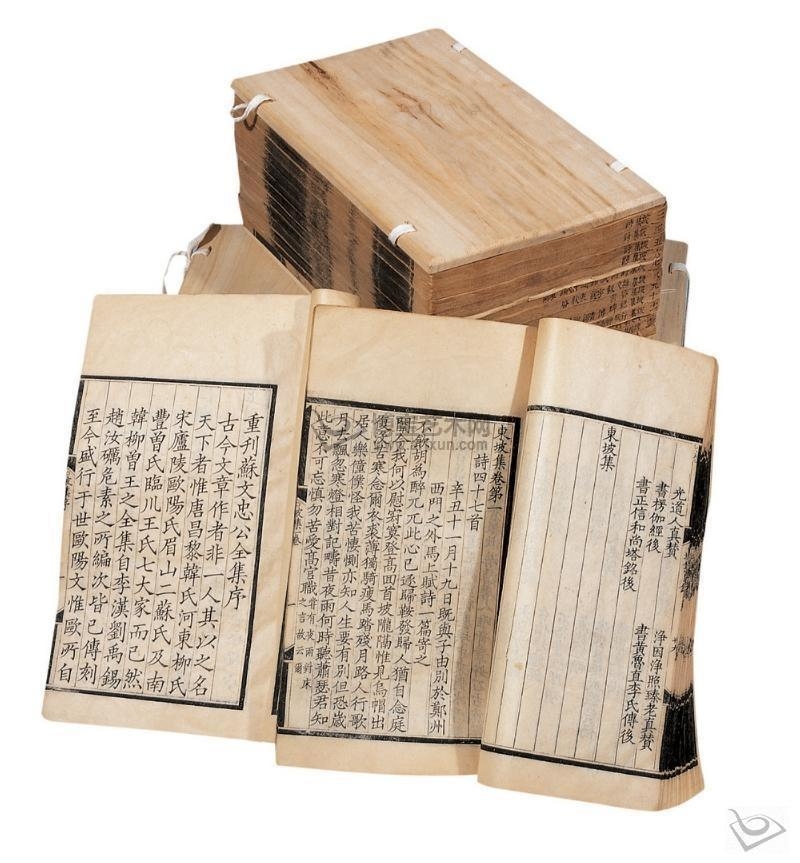 重刊蘇文忠公全集序
古今文章作者非一人其以之名
天下者惟唐昌黎韓氏河東柳氏
宋廬陵歐陽氏眉山二蘇氏及南
豐曾氏臨川王氏七大家而已然
韓柳曾王之全集自李漢劉禹錫
趙汝礪危素之所編次皆已傳刻
至今盛行于世歐陽文惟歐所自
東坡集卷第一
詩四十七首
辛丑十一月十九日既與子由別於鄭州
西門之外馬上賦詩一篇寄之
不飲胡為醉兀兀此心已逐歸鞍發歸人猶自念庭
闈今我何以慰寂寞登高回首坡隴隔惟見烏帽出
復沒苦寒念爾衣裘薄獨騎瘦馬踏殘月路人行歌
居人樂僮僕怪我苦悽惻亦知人生要有別但恐歲
月去飄忽寒燈相對記疇昔夜雨何時聽蕭瑟君知
此意不可忘慎勿苦愛高官職嘗有夜雨對床
之言故云爾
光道人真贊
淨因淨照臻老真贊
書楞伽經後
書黃魯直李氏傳後
書正信和尚塔銘後
東坡集